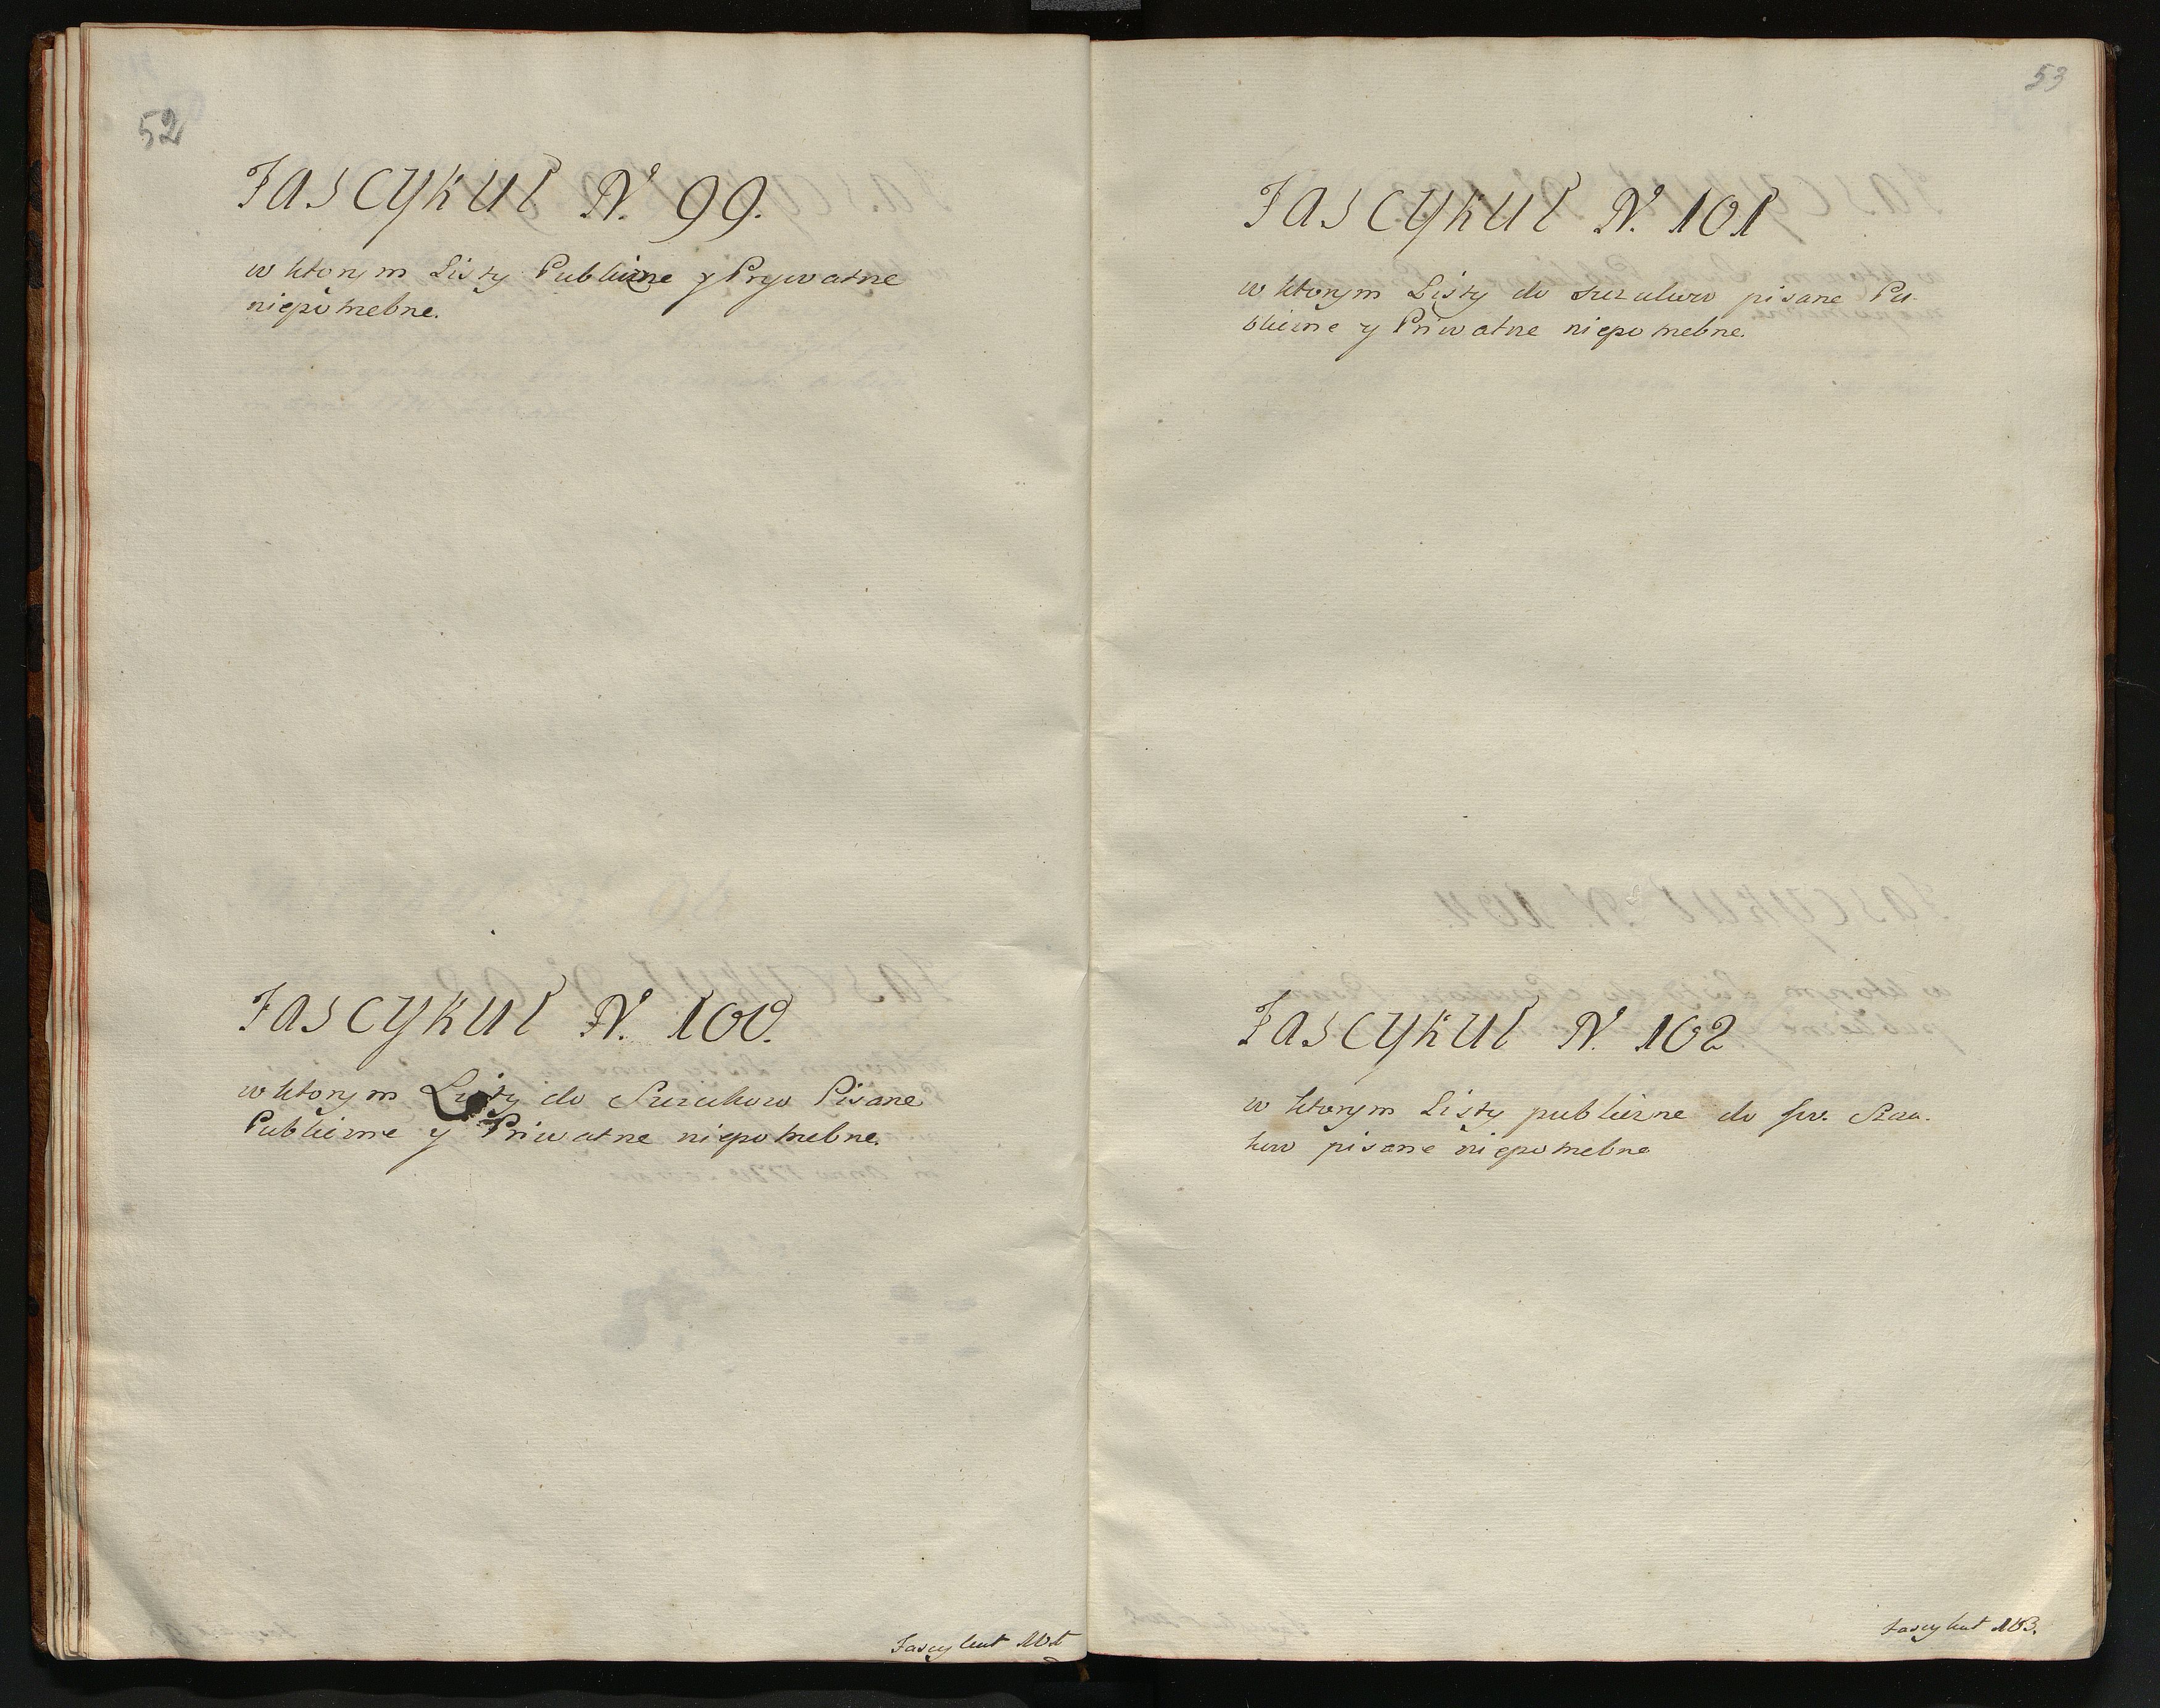 52
Fascykuł N. 99.
w ktorym Listy Publiczne y Prywatne
niepotrzebne.
Fascykuł N. 100.
w ktorym Listy do Pisane
Publiczne y Priwatne niepotrzebne.
Fascykuł 101
53
Fascykuł N. 101
w ktorym Listy do pisane Pu-
bliczne y Priwatne niepotrzebne.
Fascykuł N. 102
w ktorym Listy publiczne do
pisane niepotrzebne
Fascykuł 103.